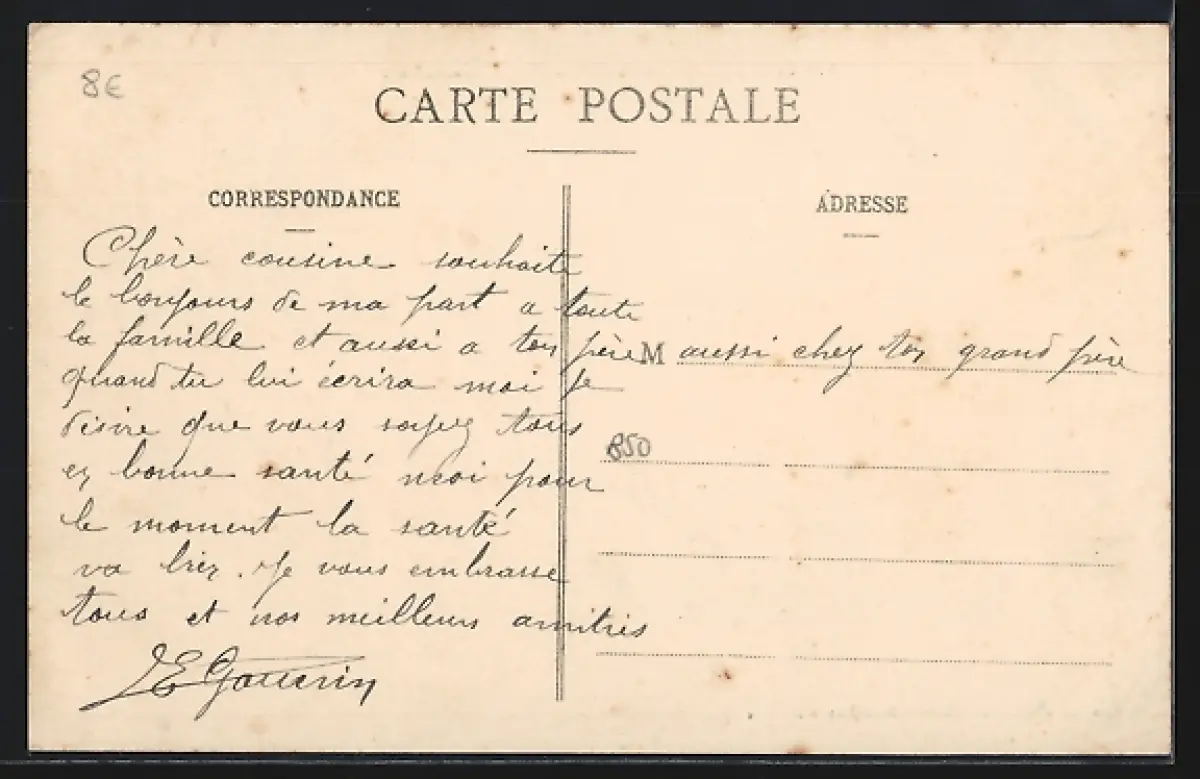 8€
CARTE POSTALE
CORRESPONDANCE
ADRESSE
Chère cousine souhaite
le bonjours de ma part a toute
la famille et aussi a ton père M aussi chez ton grand père
quand tu lui écrira moi je
désire que vous soyez tous
en bonne santé moi pour
le moment la santé
va bien. Je vous embrasse
tous et nos meilleurs amitiés
850